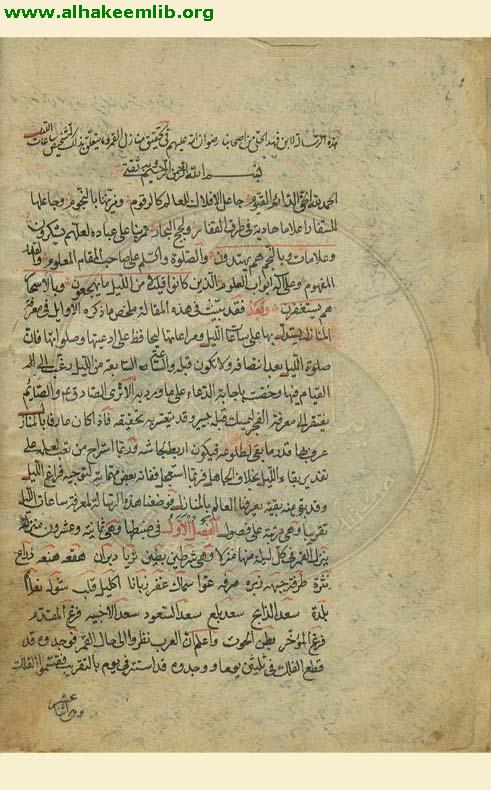 www.alhakeemlib.org
هذه الرسالة لابن فهد الحلي من اصحابنا رضوان الله عليهم في تحقيق منازل القمر وما يتعلق بذلك كتشخيص ساعات الليل
بسم الله الرحمن الرحيم وبه ثقتي
الحمد لله الحي الدائم القيوم جاعل الافلاك للعالم كالرقوم ومزينها بالنجوم وجاعلها
للاستفادة اعلاما هادية في طرف القفار ولجج البحار تمرنا على عباده لعلهم يشكرون
وعلامات وبالنجم هم يهتدون والصلوة واكتمل على صاحب المقام المعلوم
المفهوم وعلى آله ابواب العلوم الذين كانوا قليلا من الليل ما يهجعون وبالاسحار
هم يستغفرون وبعد فقد بينت في هذه المقالة ملخص ما ذكره الاوايل في معرفة
المنازل يستدل بها على ساعات الليل ومراعاتها ليحافظ على ادعيتها وصلواتها فان
صلوة الليل بعد انتصافه ولا يكون قبله والساعة السابعة من الليل رغب الى
القيام فيها وخصت باجابة الدعاء على ما ورد به الاثر والصايم
يفتقر الى معرفة الفجر ليمسك قبله بيسير وقد يتعسر به تحقيقه فاذا كان عارفا بالمنازل
عرف بها قدر ما بقي لطلوعه فيكون اربط لجاشه وربما استراح من تقى لعلمه على
تقدير بقاء الليل بخلاف الجاهل فربما استعجل ففاته بعض مهماته لتوجيه فراغ الليل
وقد بقي منه بقية يعرفها العالم بالمنازل فوضعنا هذه الرسالة لمعرفة ساعات الليل
تقريبا وهي مرتبة على فصول الفصل الاول في ضبطها وهي ثمانية وعشرون منزلة
ينزل القمر في كل ليلة منها منزلا وهي شرطين بطين ثريا دبران هقعه هنعه ذراع
نثرة طرفة جبهه زبره صرفه عوا سماك غفر زبانا اكليل قلب شوله نعايم
بلدة سعد الذابح سعد بلع سعد السعود سعد الاخبيه فرغ المقدم
فرغ المؤخر بطن الحوت واعلم ان العرب نظروا الى حال القمر فوجدوه قد
قطع الفلك في ثلثين يوما ووجدوه قد استتر في يوم بالتقريب فقسموا الفلك